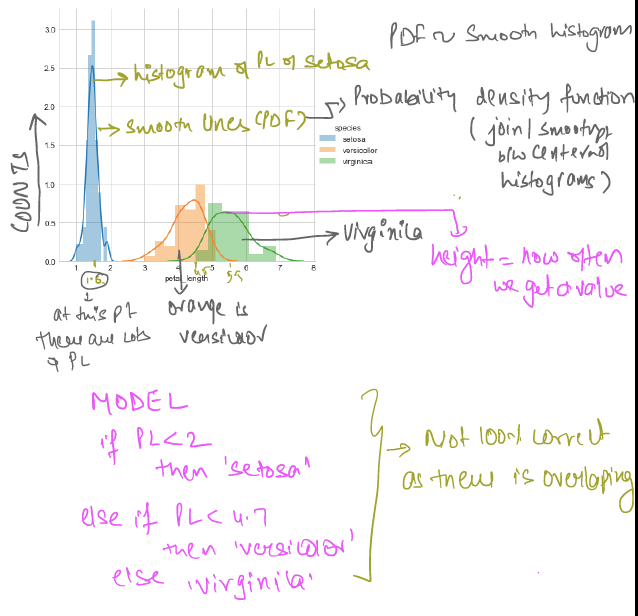 PDF ~ Smooth histogram
histogram of PL of setosa
smooth lines (PDF)
Probability density function
( join / smooth
b/w center of
histograms )
COUNTS
3.0
2.5
2.0
1.5
1.0
0.5
0.0
species
setosa
versicolor
virginica
virginica
height = how often
we get a value
1 2 3 4 5 6 7 8
petal_length
1.6
4.5
5.5
at this pt
there are lots
of PL
orange is
versicolor
MODEL
if PL<2
then 'setosa'
else if PL< 4.7
then 'versicolor'
else 'virginica'
Not 100% correct
as there is overlaping